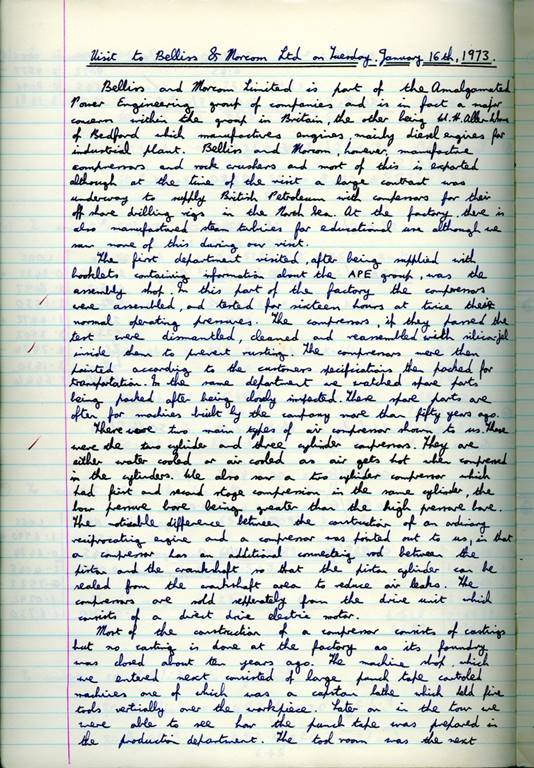 Visit to Belliss & Morcom Ltd on Tuesday, January 16th, 1973.
Belliss and Morcom Limited is part of the Amalgamated
Power Engineering group of companies and is in fact a major
concern within the group in Britain, the other being W.H. Allen
of Bedford which manufactures engines, mainly diesel engines for
industrial plant. Belliss and Morcom, however, manufacture
compressors and rock crushers and most of this is exported
although at the time of the visit a large contract was
underway to supply British Petroleum with compessors for their
off shore drilling rigs in the North Sea. At the factory, there is
also manufactured steam turbines for educational use although we
saw none of this during our visit.
The first department visited, after being supplied with
booklets containing information about the APE group, was the
assembly shop. In this part of the factory the compressors
were assembled, and tested for sixteen hours at twice their
normal operating pressures. The compressors, if they passed the
test were dismantled, cleaned and reassembled with silica-jel
inside them to prevent rusting. The compressors were then
painted according to the customers specifications then packed for
transportation. In the same department we watched spare parts
being packed after being closely inspected. These spare parts are
often for machines built by the company more than fifty years ago.
There were two main types of air compressor shown to us. These
were the two cylinder and three cylinder compressors. They are
either water cooled or air cooled as air gets hot when compressed
in the cylinders. We also saw a two cylinder compressor which
had first and second stage compression in the same cylinder, the
low pressure bore being greater than the high pressure bore.
The noticable difference between the construction of an ordinary
reciprocating engine and a compressor was pointed out to us, in that
a compressor has an additional connecting rod between the
piston and the crankshaft so that the piston cylinder can be
sealed from the crankshaft area to reduce air leaks. The
compressors are sold seperately from the drive unit which
consists of a direct drive electric motor.
Most of the construction of a compressor consists of castings
but no casting is done at the factory as its foundry
was closed about ten years ago. The machine shop, which
we entered next consisted of large punch tape controled
machines one of which was a capstan lathe which held five
tools vertically over the workpiece. Later on in the tour we
were able to see how the punch tape was prepared in
the production department. The tool room was the next